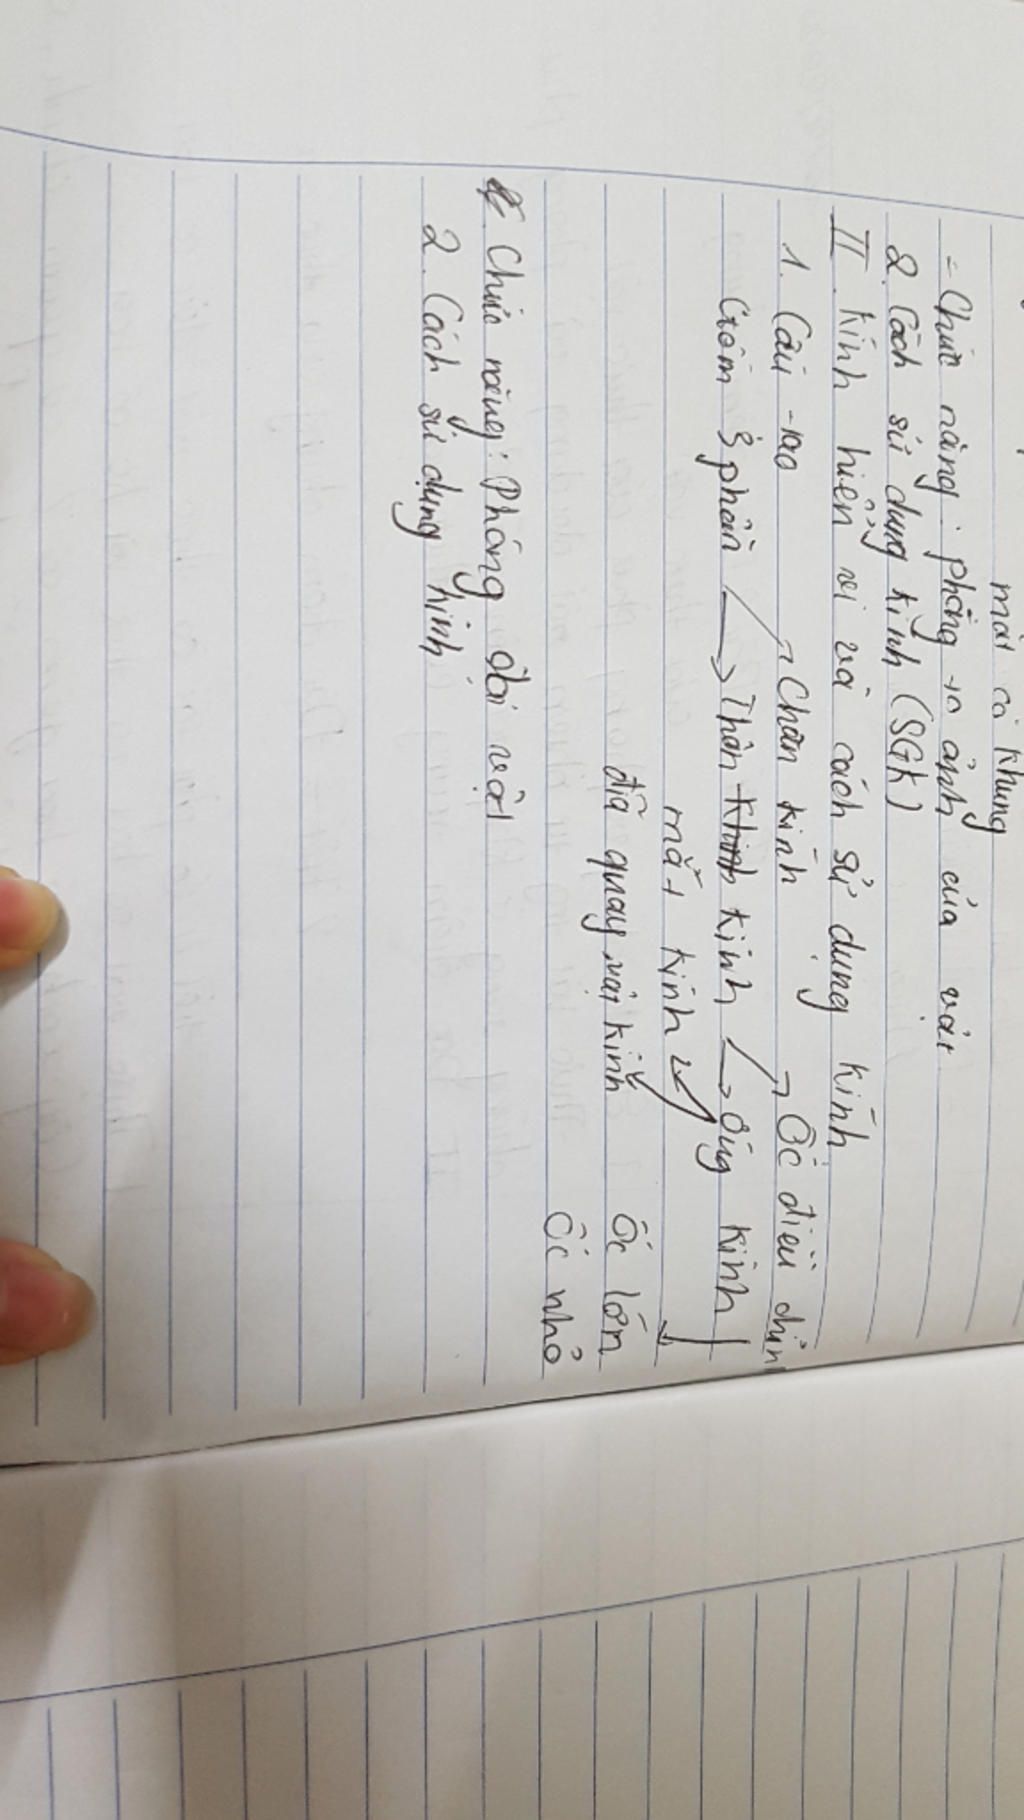 mặt có khung
- Chức năng: phóng to ảnh của vật
2. Cách sử dụng kính (SGK)
II. Kính hiển vi và cách sử dụng kính
1. Cấu tạo
Chân kính Ốc điều chỉn
Gồm 3 phần Thân kính Ống kính
mắt kính
đĩa quay vật kính Ốc lớn
Ốc nhỏ
Chức năng: Phóng đại vật
2. Cách sử dụng kính